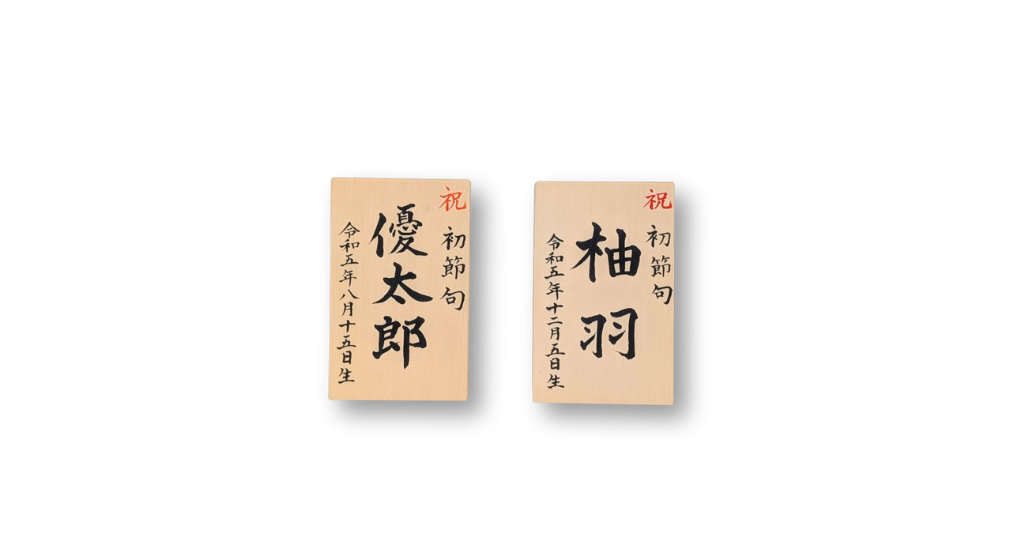 祝
初節句
優太郎
令和五年八月十五日生
祝
初節句
柚羽
令和五年十二月五日生